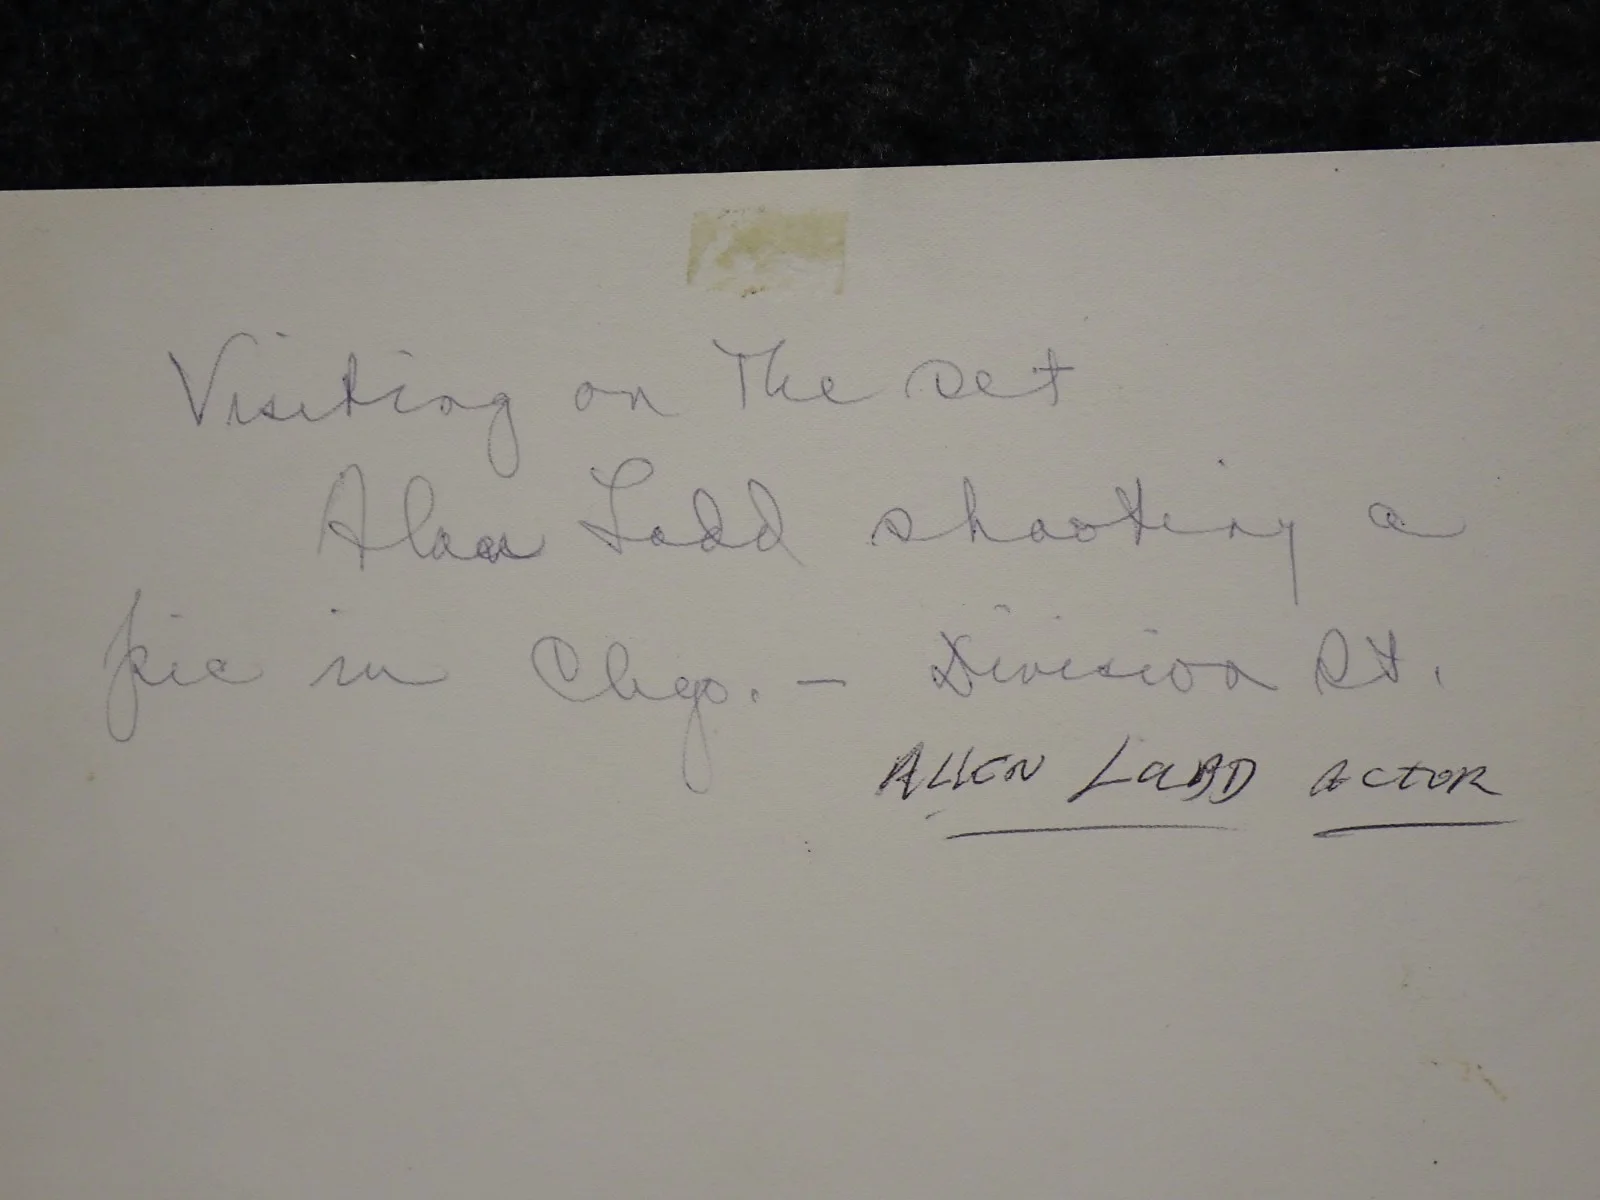 Visiting on The set
Alan Ladd shooting a
pic in Chgo. – Division St.
ALLEN LADD ACTOR